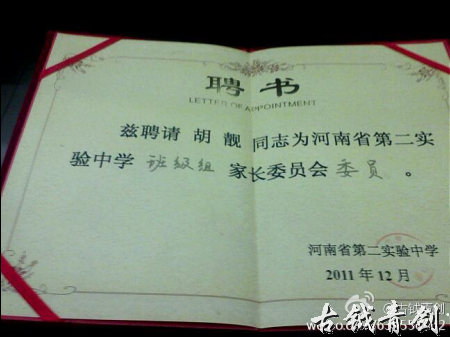 聘书
LETTER OF APPOINTMENT
兹聘请 胡 靓 同志为河南省第二实
验中学 班级组 家长委员会 委员 。
河南省第二实验中学
2011 年 12 月
@古钺青创
古钺青创